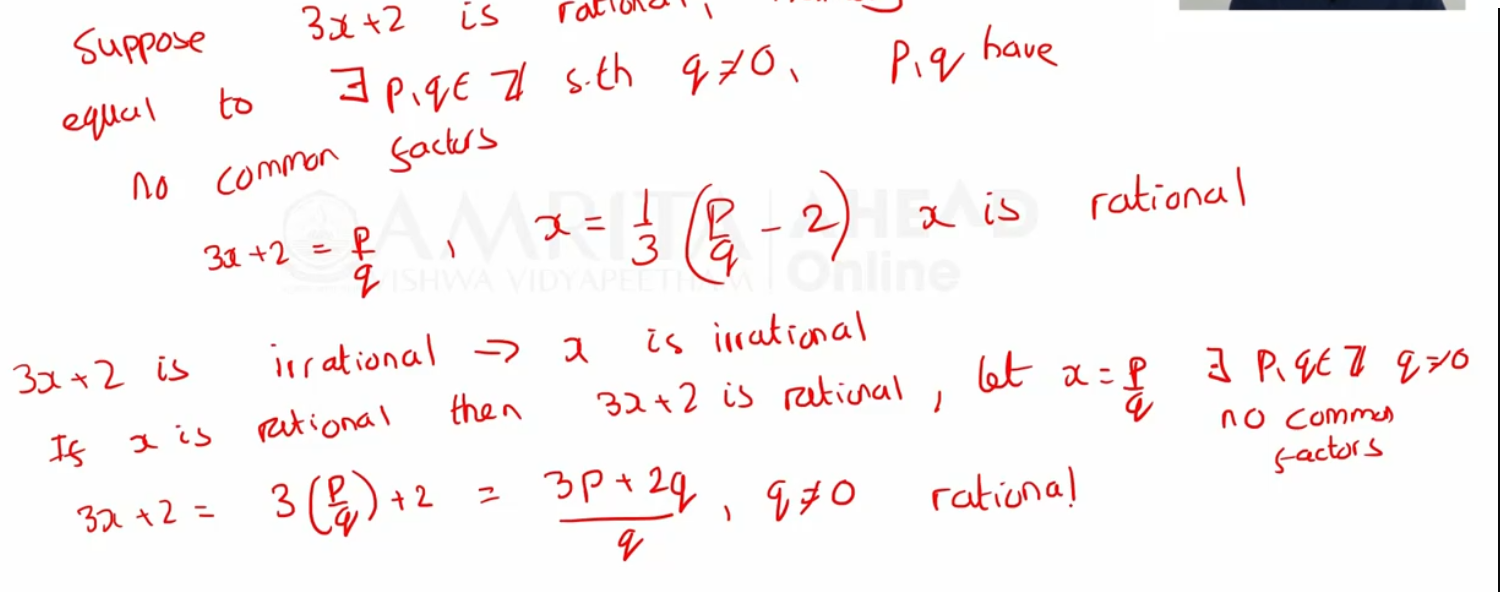 Suppose 3x+2 is rational,
equal to ∃ p,q ∈ ℤ s.th q≠0, p,q have
no common factors
3x+2 = p/q, x = 1/3 (p/q - 2) x is rational
AMRITA AHEAD
VISHWA VIDYAPEETHAM Online
3x+2 is irrational → x is irrational
If x is rational then 3x+2 is rational, let x = p/q ∃ p,q ∈ ℤ q≠0
no common
factors
3x+2 = 3(p/q)+2 = (3p+2q)/q, q≠0 rational